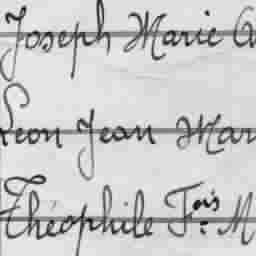 Joseph Marie
Léon Jean Mar
Théophile F.ois M